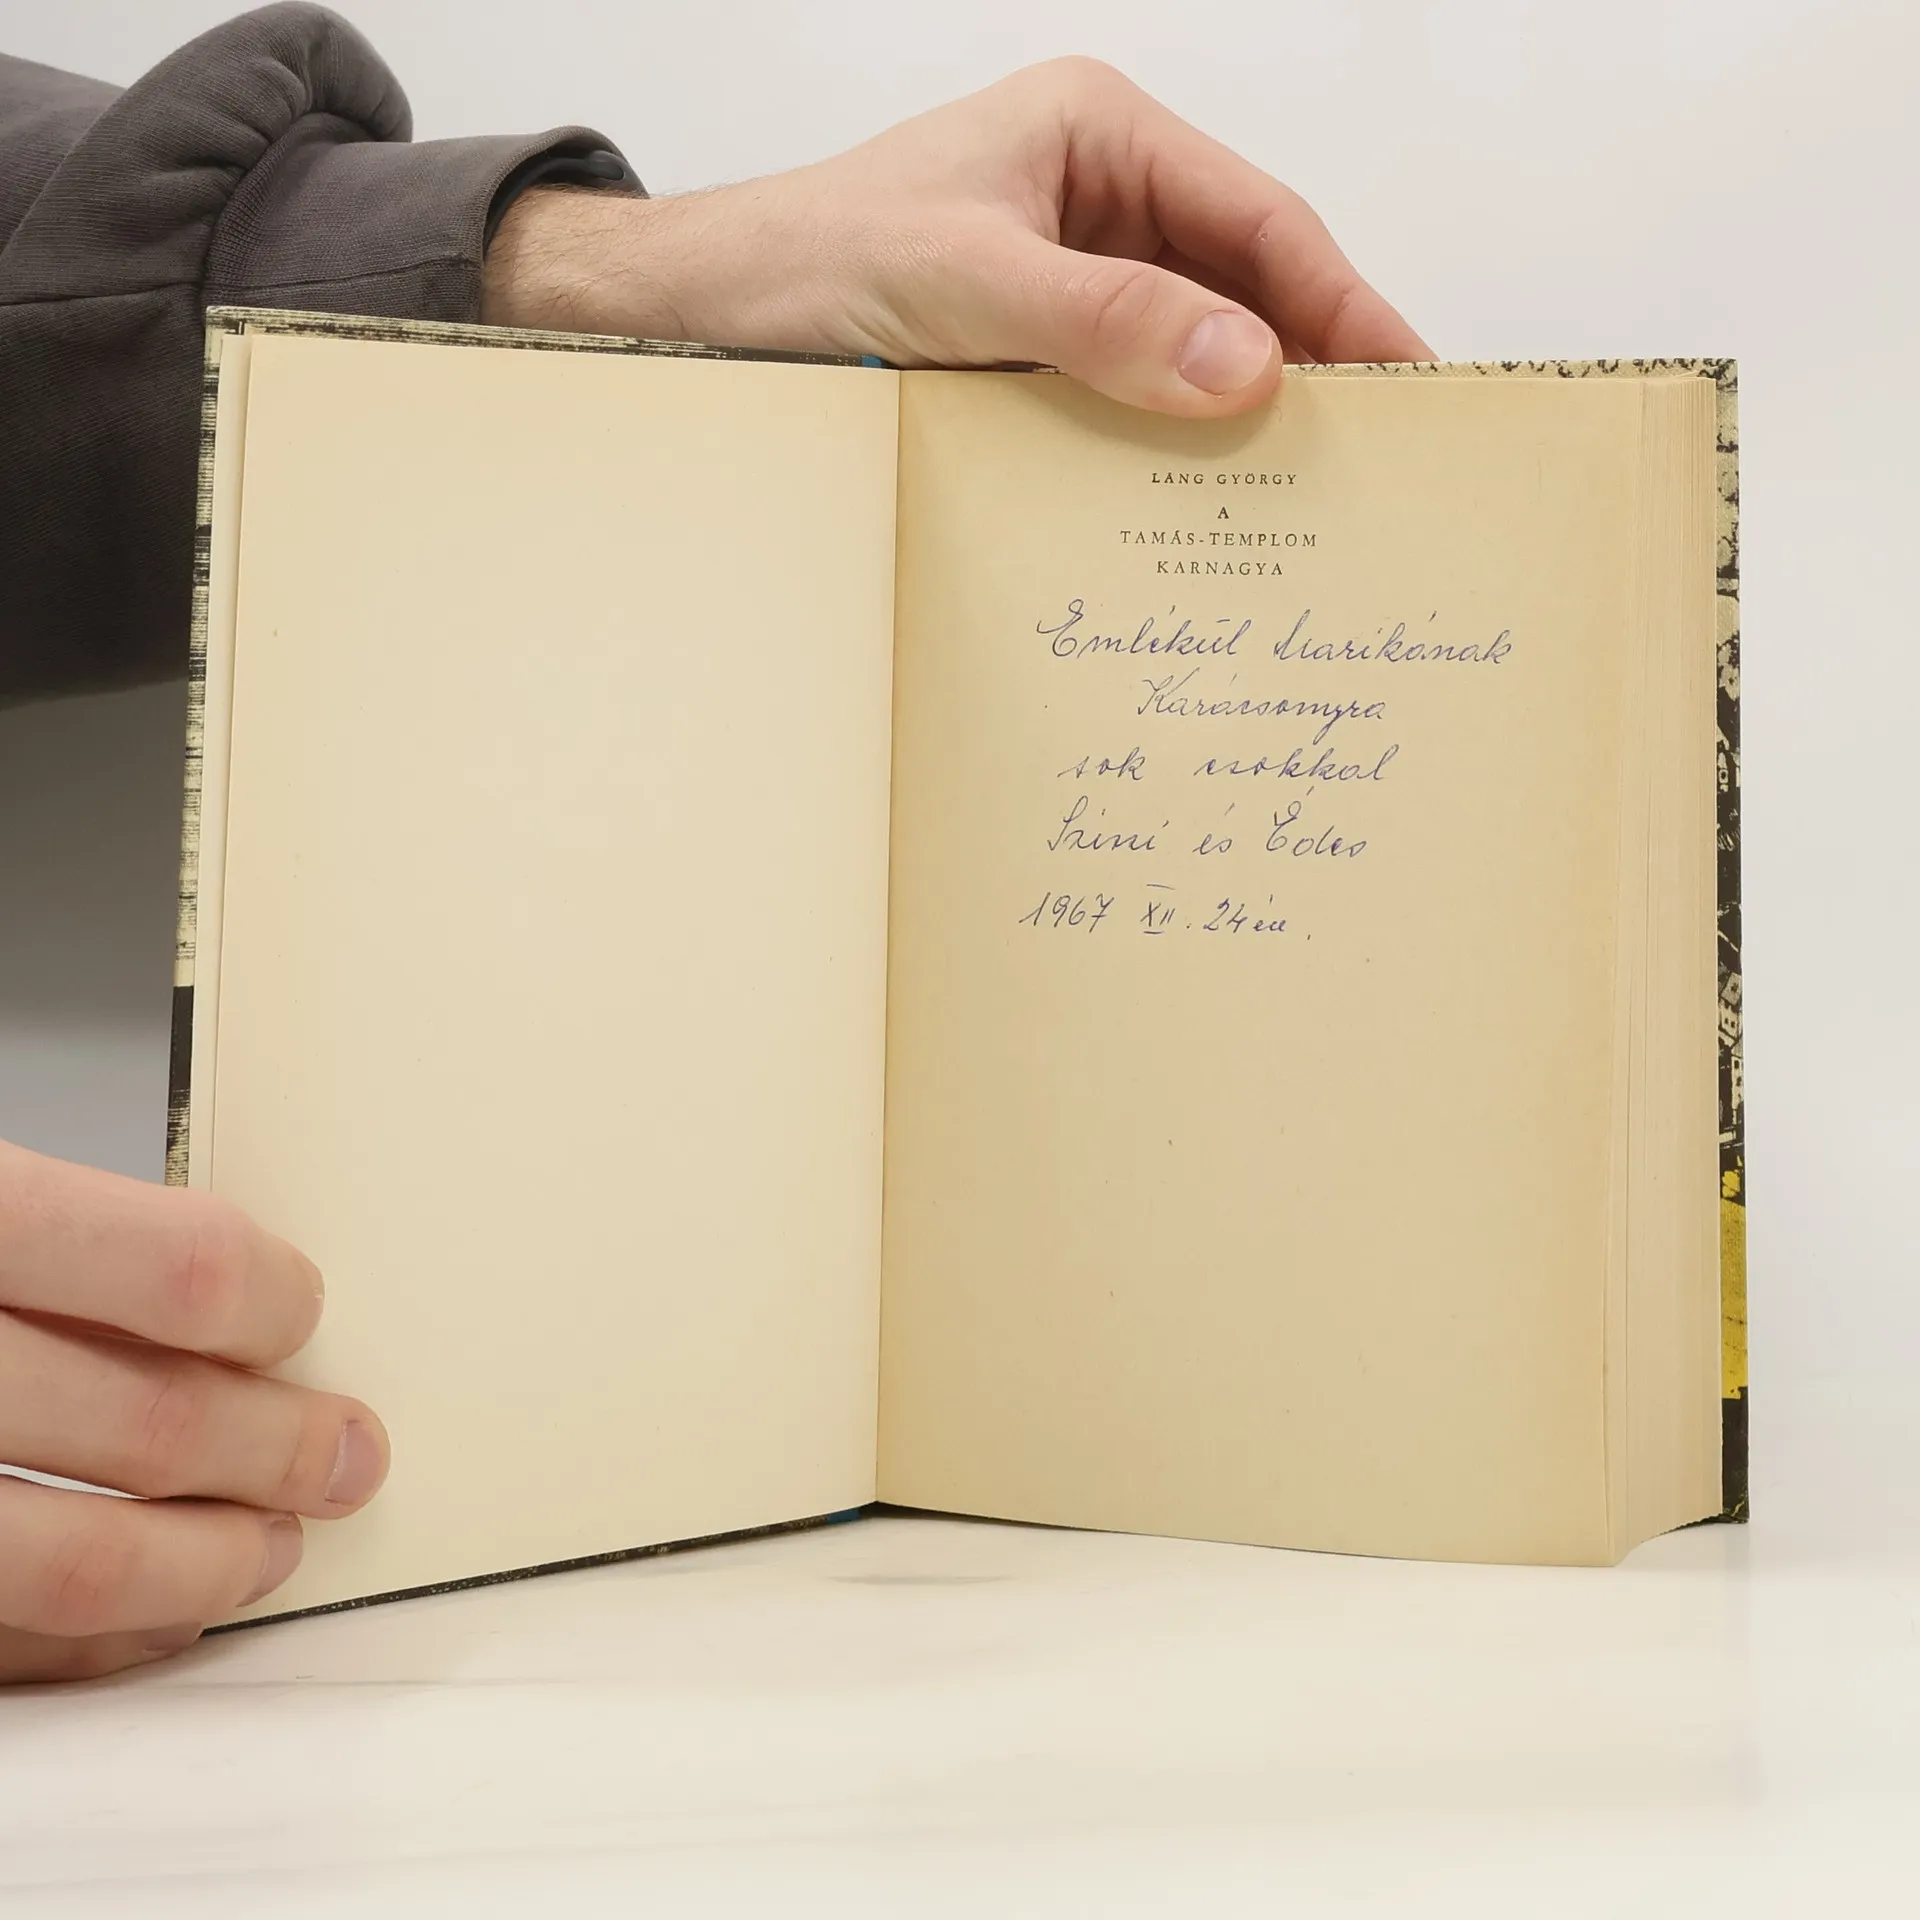 LÁNG GYÖRGY
A
TAMÁS-TEMPLOM
KARNAGYA
Emlékül Marikának
Karácsonyra
sok csókkal
és Édes
1967 XII. 24 én.